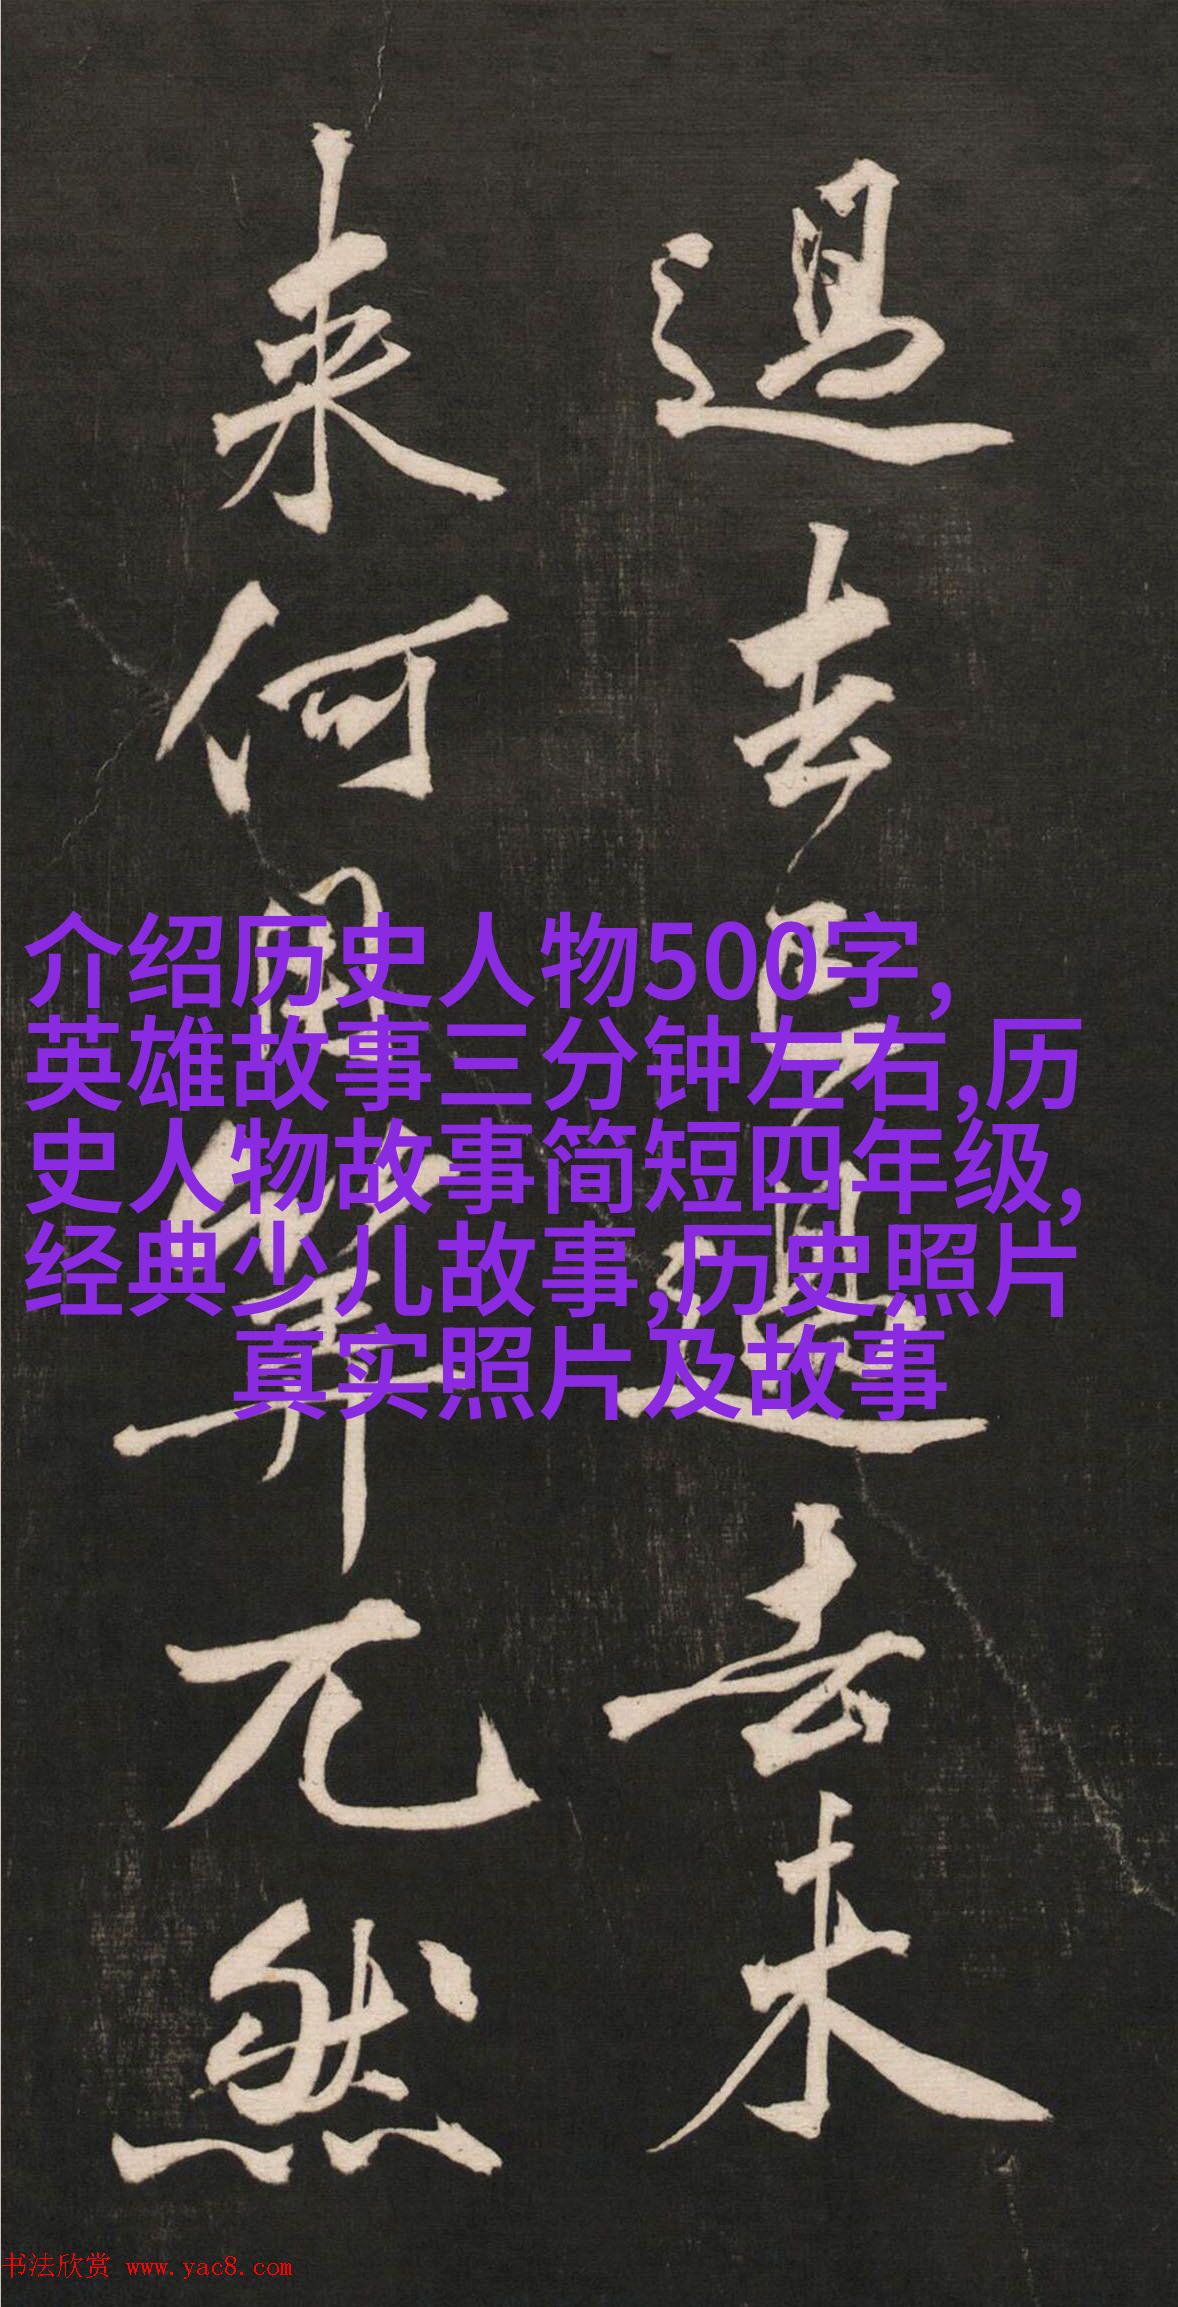 過去已過去未
来何用算兀然
介绍历史人物500字,
英雄故事三分钟左右,历
史人物故事简短四年级,
经典少儿故事,历史照片
真实照片及故事
书法欣赏 www.yac8.com